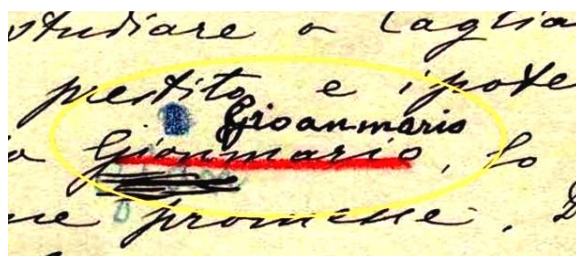 studiare a Caglia
prestito e ipote
Gioanmario
a Gionmario, lo
ne promesse. D